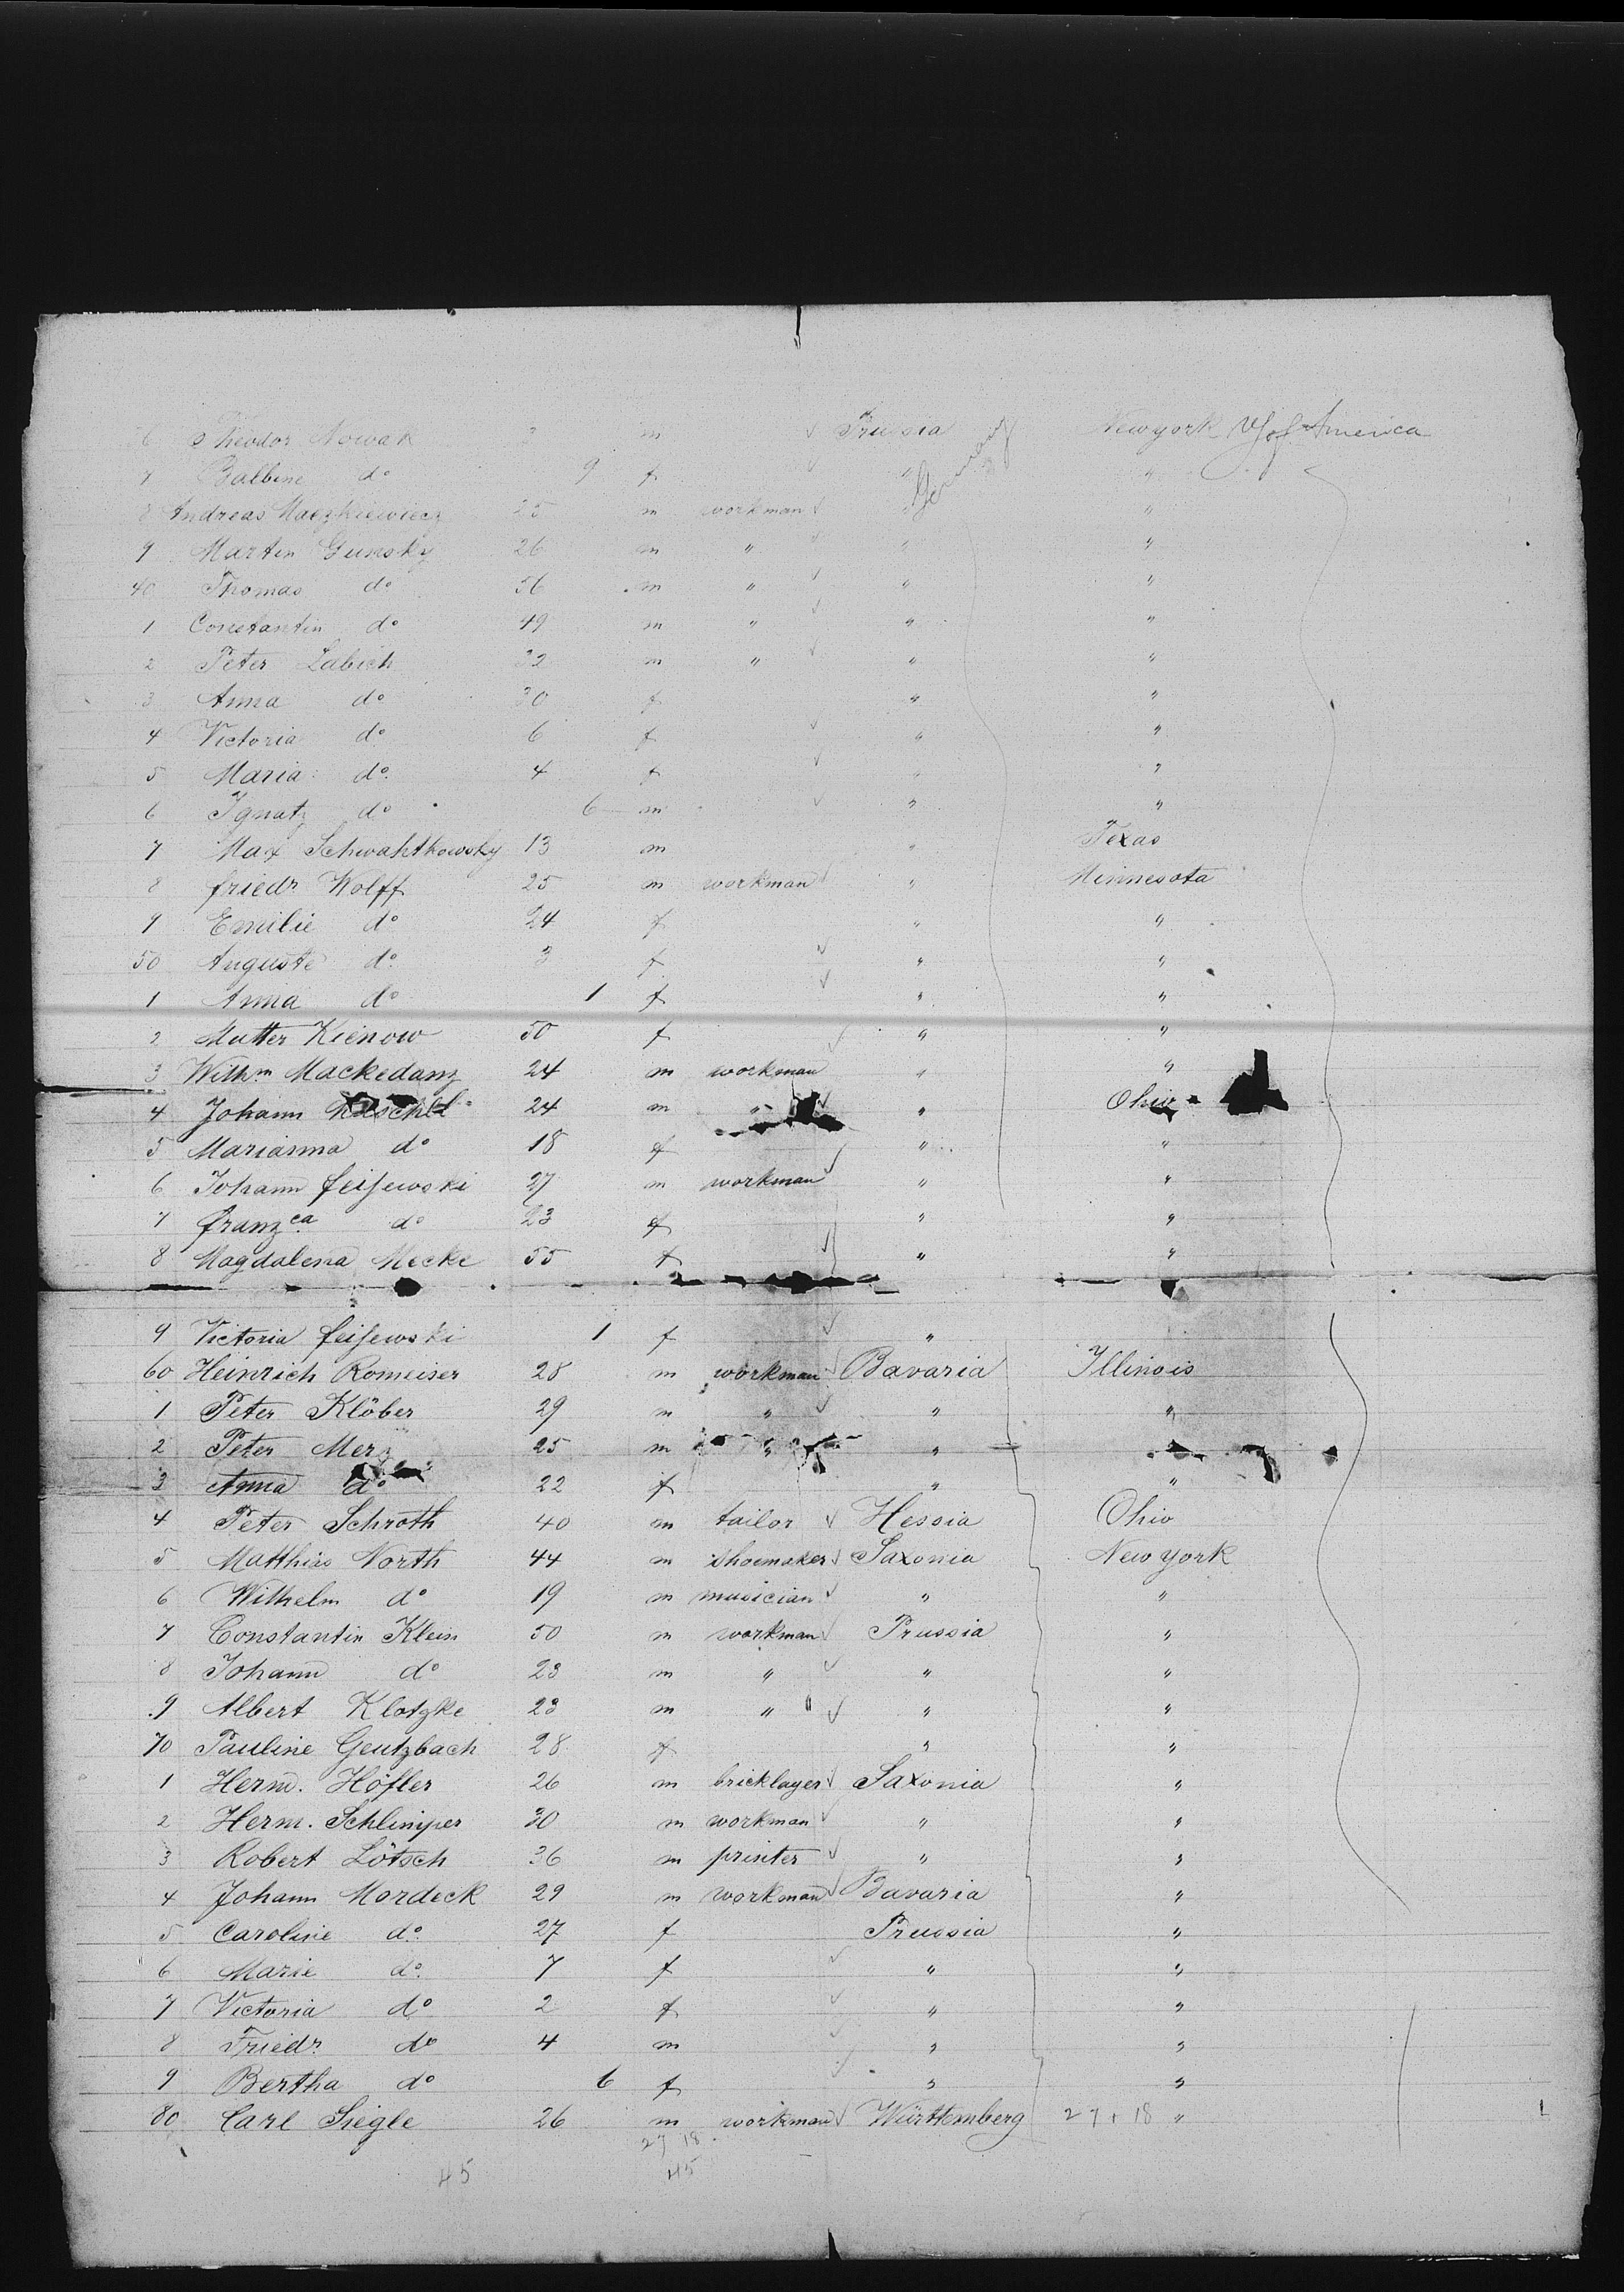 36 Theodor Nowak 3 m ✓ Prussia Newyork U S of America
7 Balbine do 9 f ✓ " Germany "
8 Andreas Maezkiewiecz 25 m workman ✓ " "
9 Martin Gunsky 26 m " ✓ " "
40 Thomas do 56 m " ✓ " "
1 Constantin do 49 m " ✓ " "
2 Peter Labich 32 m " ✓ " "
3 Anna do 30 f " "
4 Victoria do 6 f ✓ " "
5 Maria do 4 f ✓ " "
6 Ignatz do 6 m ✓ " "
7 Max Schwahtkowsky 13 m " Texas
8 friedr Wolff 25 m workman ✓ " Minnesota
9 Emilie do 24 f " "
50 Auguste do 3 f ✓ " "
1 Anna do 1 f ✓ " "
2 Mutter Kienow 50 f ✓ " "
3 Wilhm Mackedanz 24 m workman " "
4 Johann 24 m " ✓ " Ohio
5 Marianna do 18 f " "
6 Johann feisewski 27 m workman ✓ " "
7 franzca do 23 f " "
8 Magdalena Mecke 55 f ✓ " "
9 Victoria feisewski 1 f ✓ "
60 Heinrich Romeiser 28 m workman ✓ Bavaria Illinois
1 Peter Klöber 29 m " ✓ " "
2 Peter Merz 25 m " "
3 Anna do 22 f " "
4 Peter Schroth 40 m tailor ✓ Hessia Ohio
5 Matthias North 44 m shoemaker ✓ Saxonia New york
6 Wilhelm do 19 m musician ✓ " "
7 Constantin Klein 50 m workman ✓ Prussia "
8 Johann do 23 m " ✓ " "
9 Albert Klotzke 23 m " " ✓ " "
70 Pauline Geutzbach 28 f " "
1 Herm. Höfler 26 m bricklayer ✓ Saxonia "
2 Herm. Schlimper 30 m workman ✓ " "
3 Robert Lötsch 36 m printer ✓ " "
4 Johann Mordeck 29 m workman ✓ Bavaria "
5 Caroline do 27 f Prussia "
6 Marie do 7 f ✓ " "
7 Victoria do 2 f ✓ " "
8 Friedr. do 4 m ✓ " "
9 Bertha do 6 f ✓ " "
80 Carl Siegle 26 m workman ✓ Württemberg 27 + 18 "
27 18
45 45